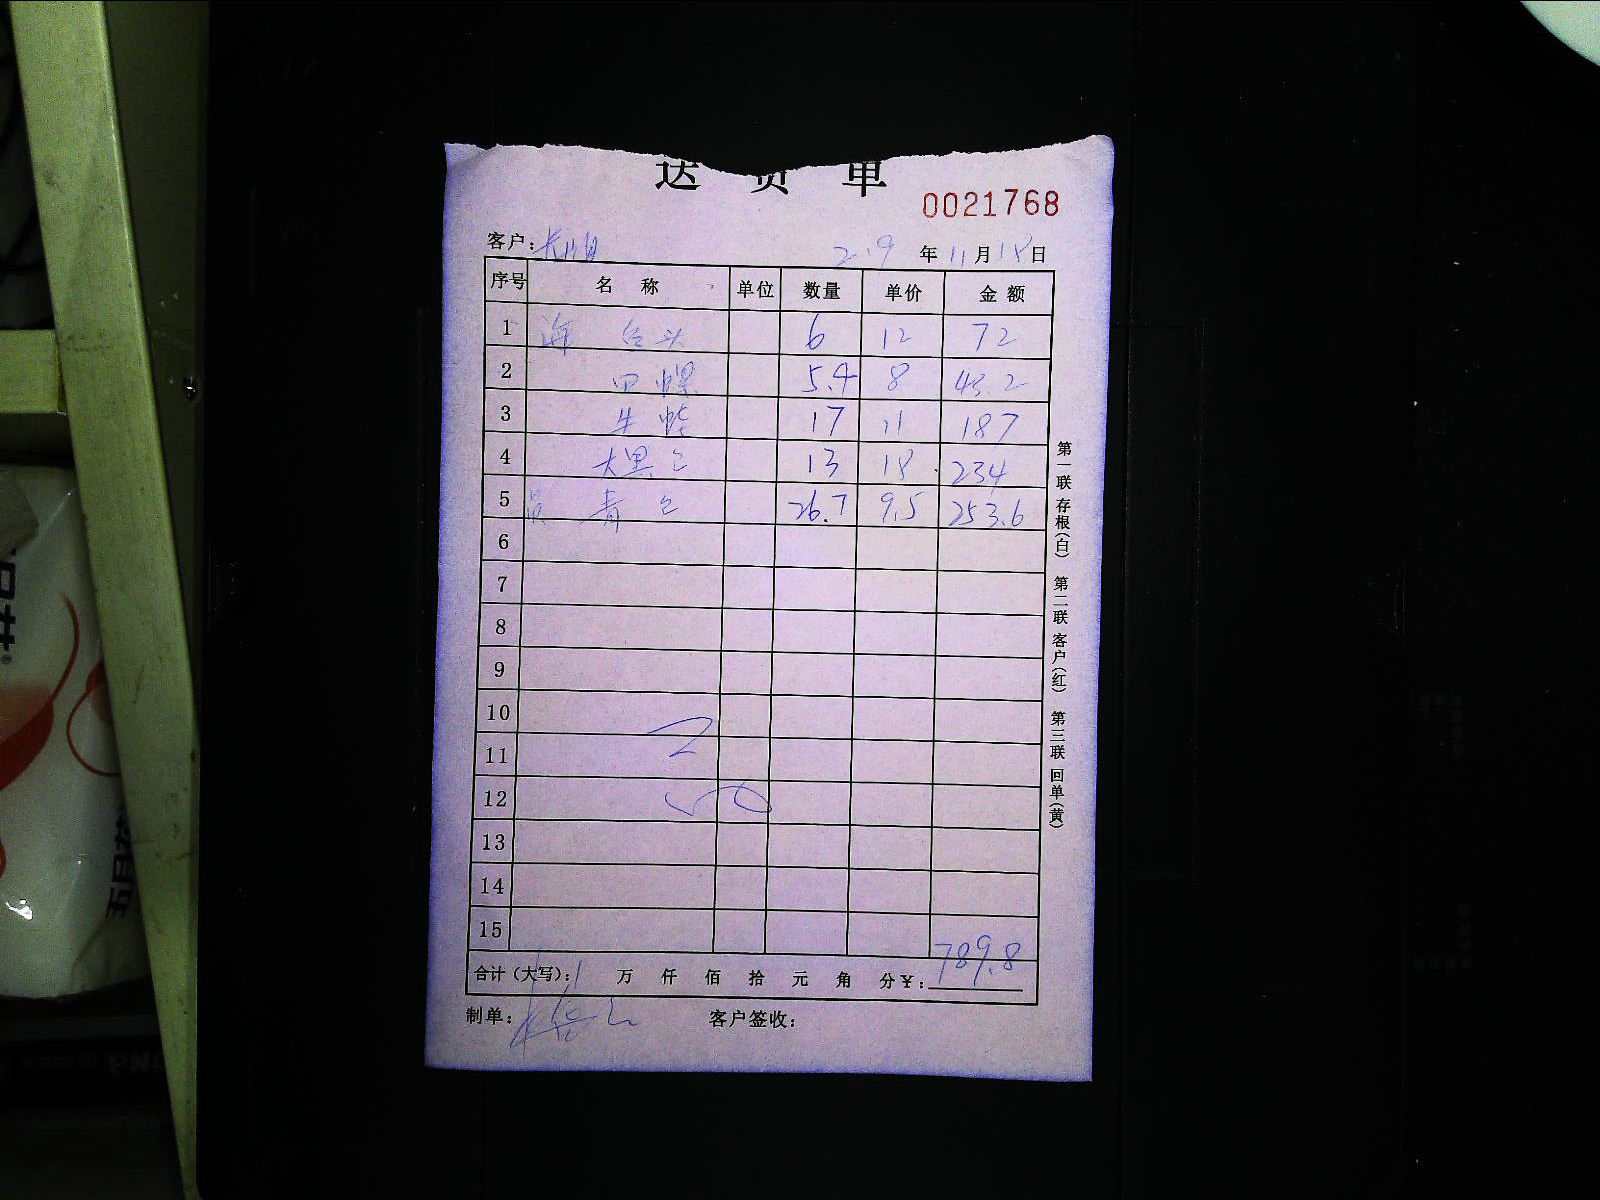 送货单
0021768
客户: 长顺 2.9 年 11 月 18 日
序号 名称 单位 数量 单价 金额
1 海 台头 6 12 72
2 田螺 5.4 8 43.2
3 牛蛙 17 11 187
4 大黑 13 18 234
5 青 26.7 9.5 253.6
6
7
8
9
10
11
12
13
14
15
789.8
合计(大写): 万 仟 佰 拾 元 角 分 ¥:
制单: 客户签收:
第一联 存根(白) 第二联 客户(红) 第三联 回单(黄)